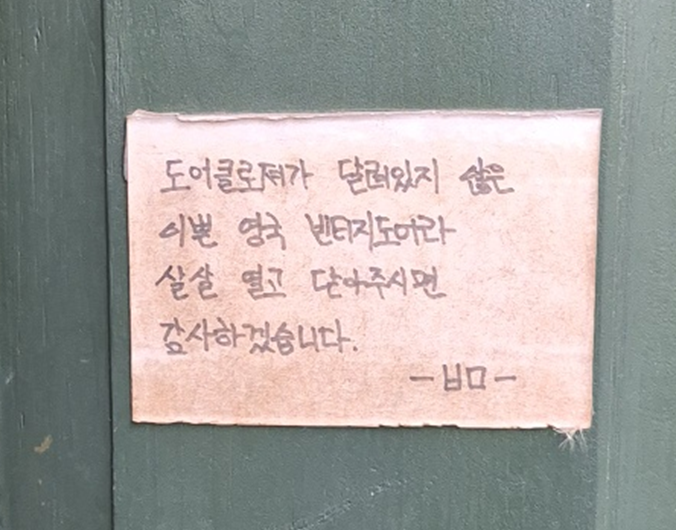 도어클로져가 달려있지 않은
이쁜 영국 빈티지도어라
살살 열고 닫아주시면
감사하겠습니다.
- ㅂㅁ -